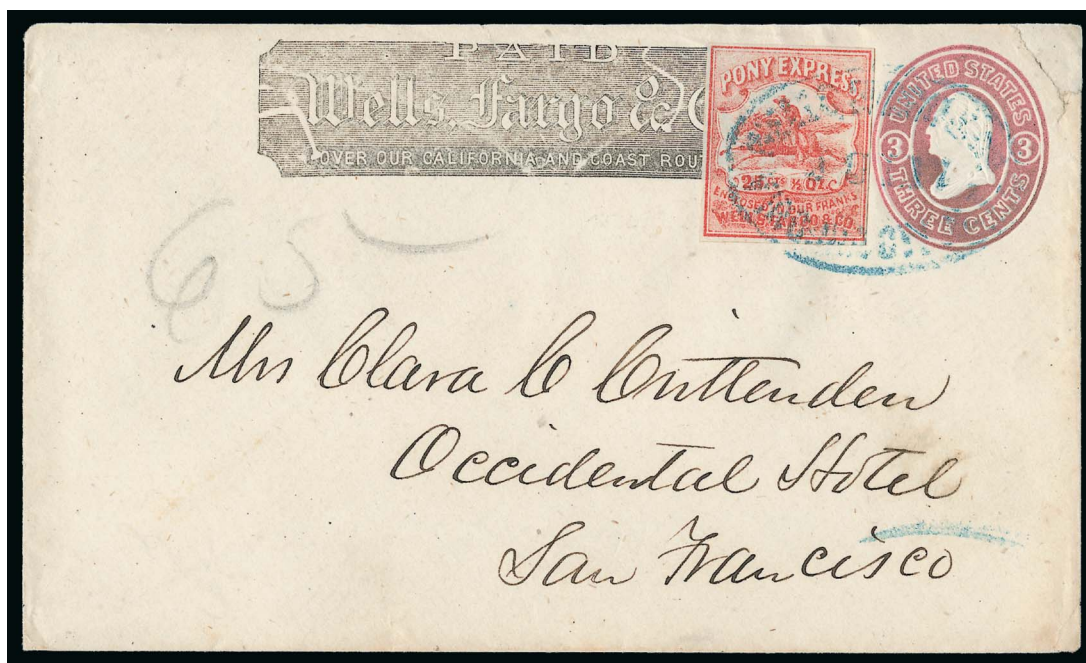 PAID
Wells, Fargo & C
OVER OUR CALIFORNIA AND COAST ROUT
PONY EXPRESS
25 CTS ½ OZ.
ENCLOSED IN OUR FRANKS
WELLS, FARGO & CO.
UNITED STATES
3 3
THREE CENTS
65
Mrs Clara C Cruttenden
Occidental Hotel
San Francisco